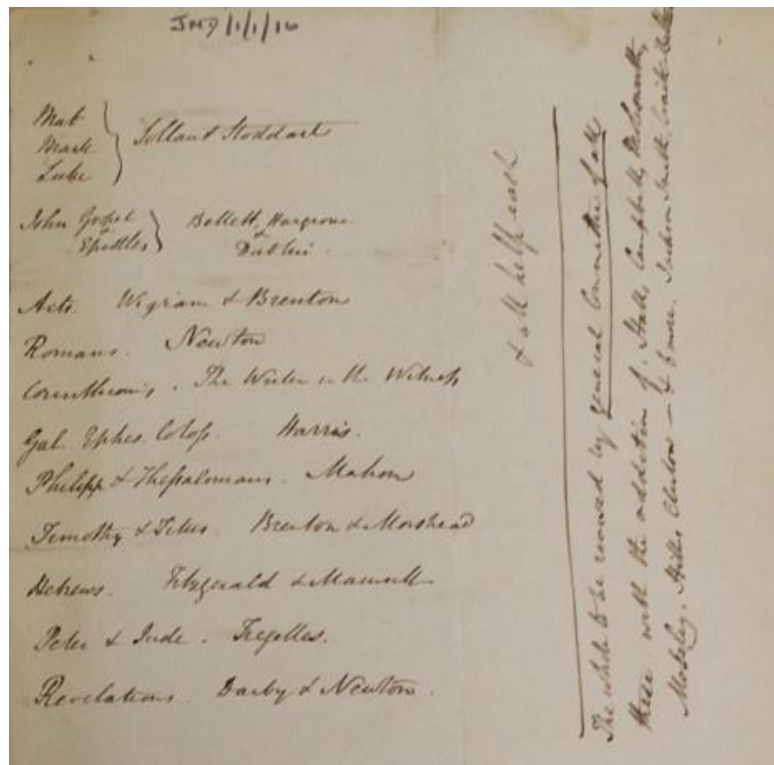 JND/1/1/16
Mat
Mark
Luke
Soltau & Stoddart
John Gospel
& Epistles
Bellett, Hargrove
& Dublin.
Acts. Wigram & Brenton
Romans. Newton
Corinthians. The Writer in the Witness
Gal. Ephes. Coloss. Harris.
Philipp & Thessalonians. Mahon
Timothy & Titus. Brenton & Morshead
Hebrews. Fitzgerald & Maunsell
Peter & Jude. Tregelles.
Revelations. Darby & Newton.
& all help each
The whole to be revised by general Committee of all
these with the addition of. Hall, Campbell,
Moseley, Hill, Clulow — & 6 more. Jackson Smith